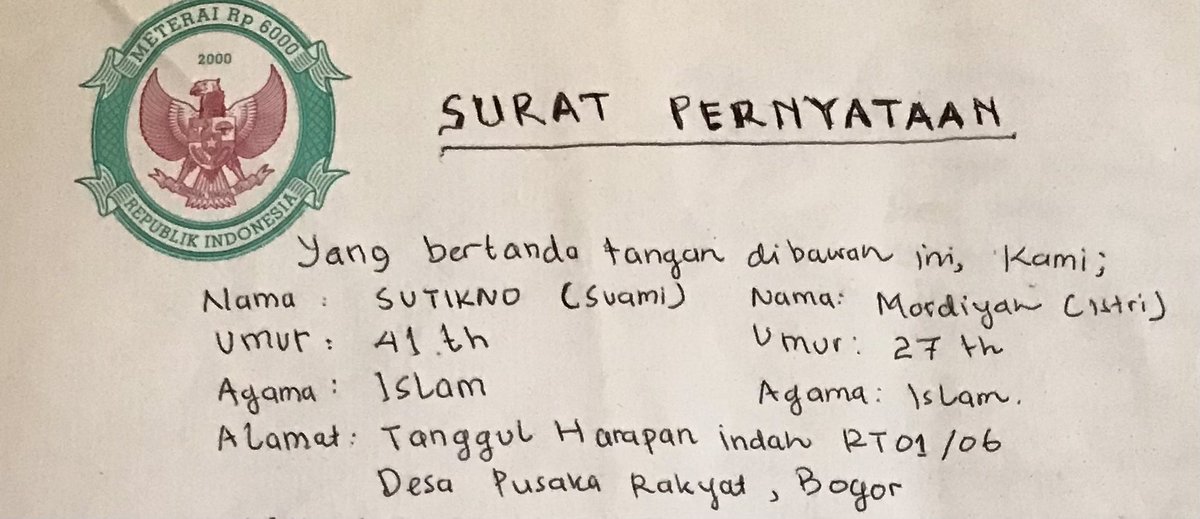 METERAI Rp 6000
2000
REPUBLIK INDONESIA
SURAT PERNYATAAN
Yang bertanda tangan dibawah ini, Kami;
Nama : SUTIKNO (Suami) Nama: Mordiyah (istri)
Umur : 41.th Umur: 27 th
Agama : Islam Agama: Islam.
Alamat: Tanggul Harapan indah RT01/06
Desa Pusaka Rakyat, Bogor